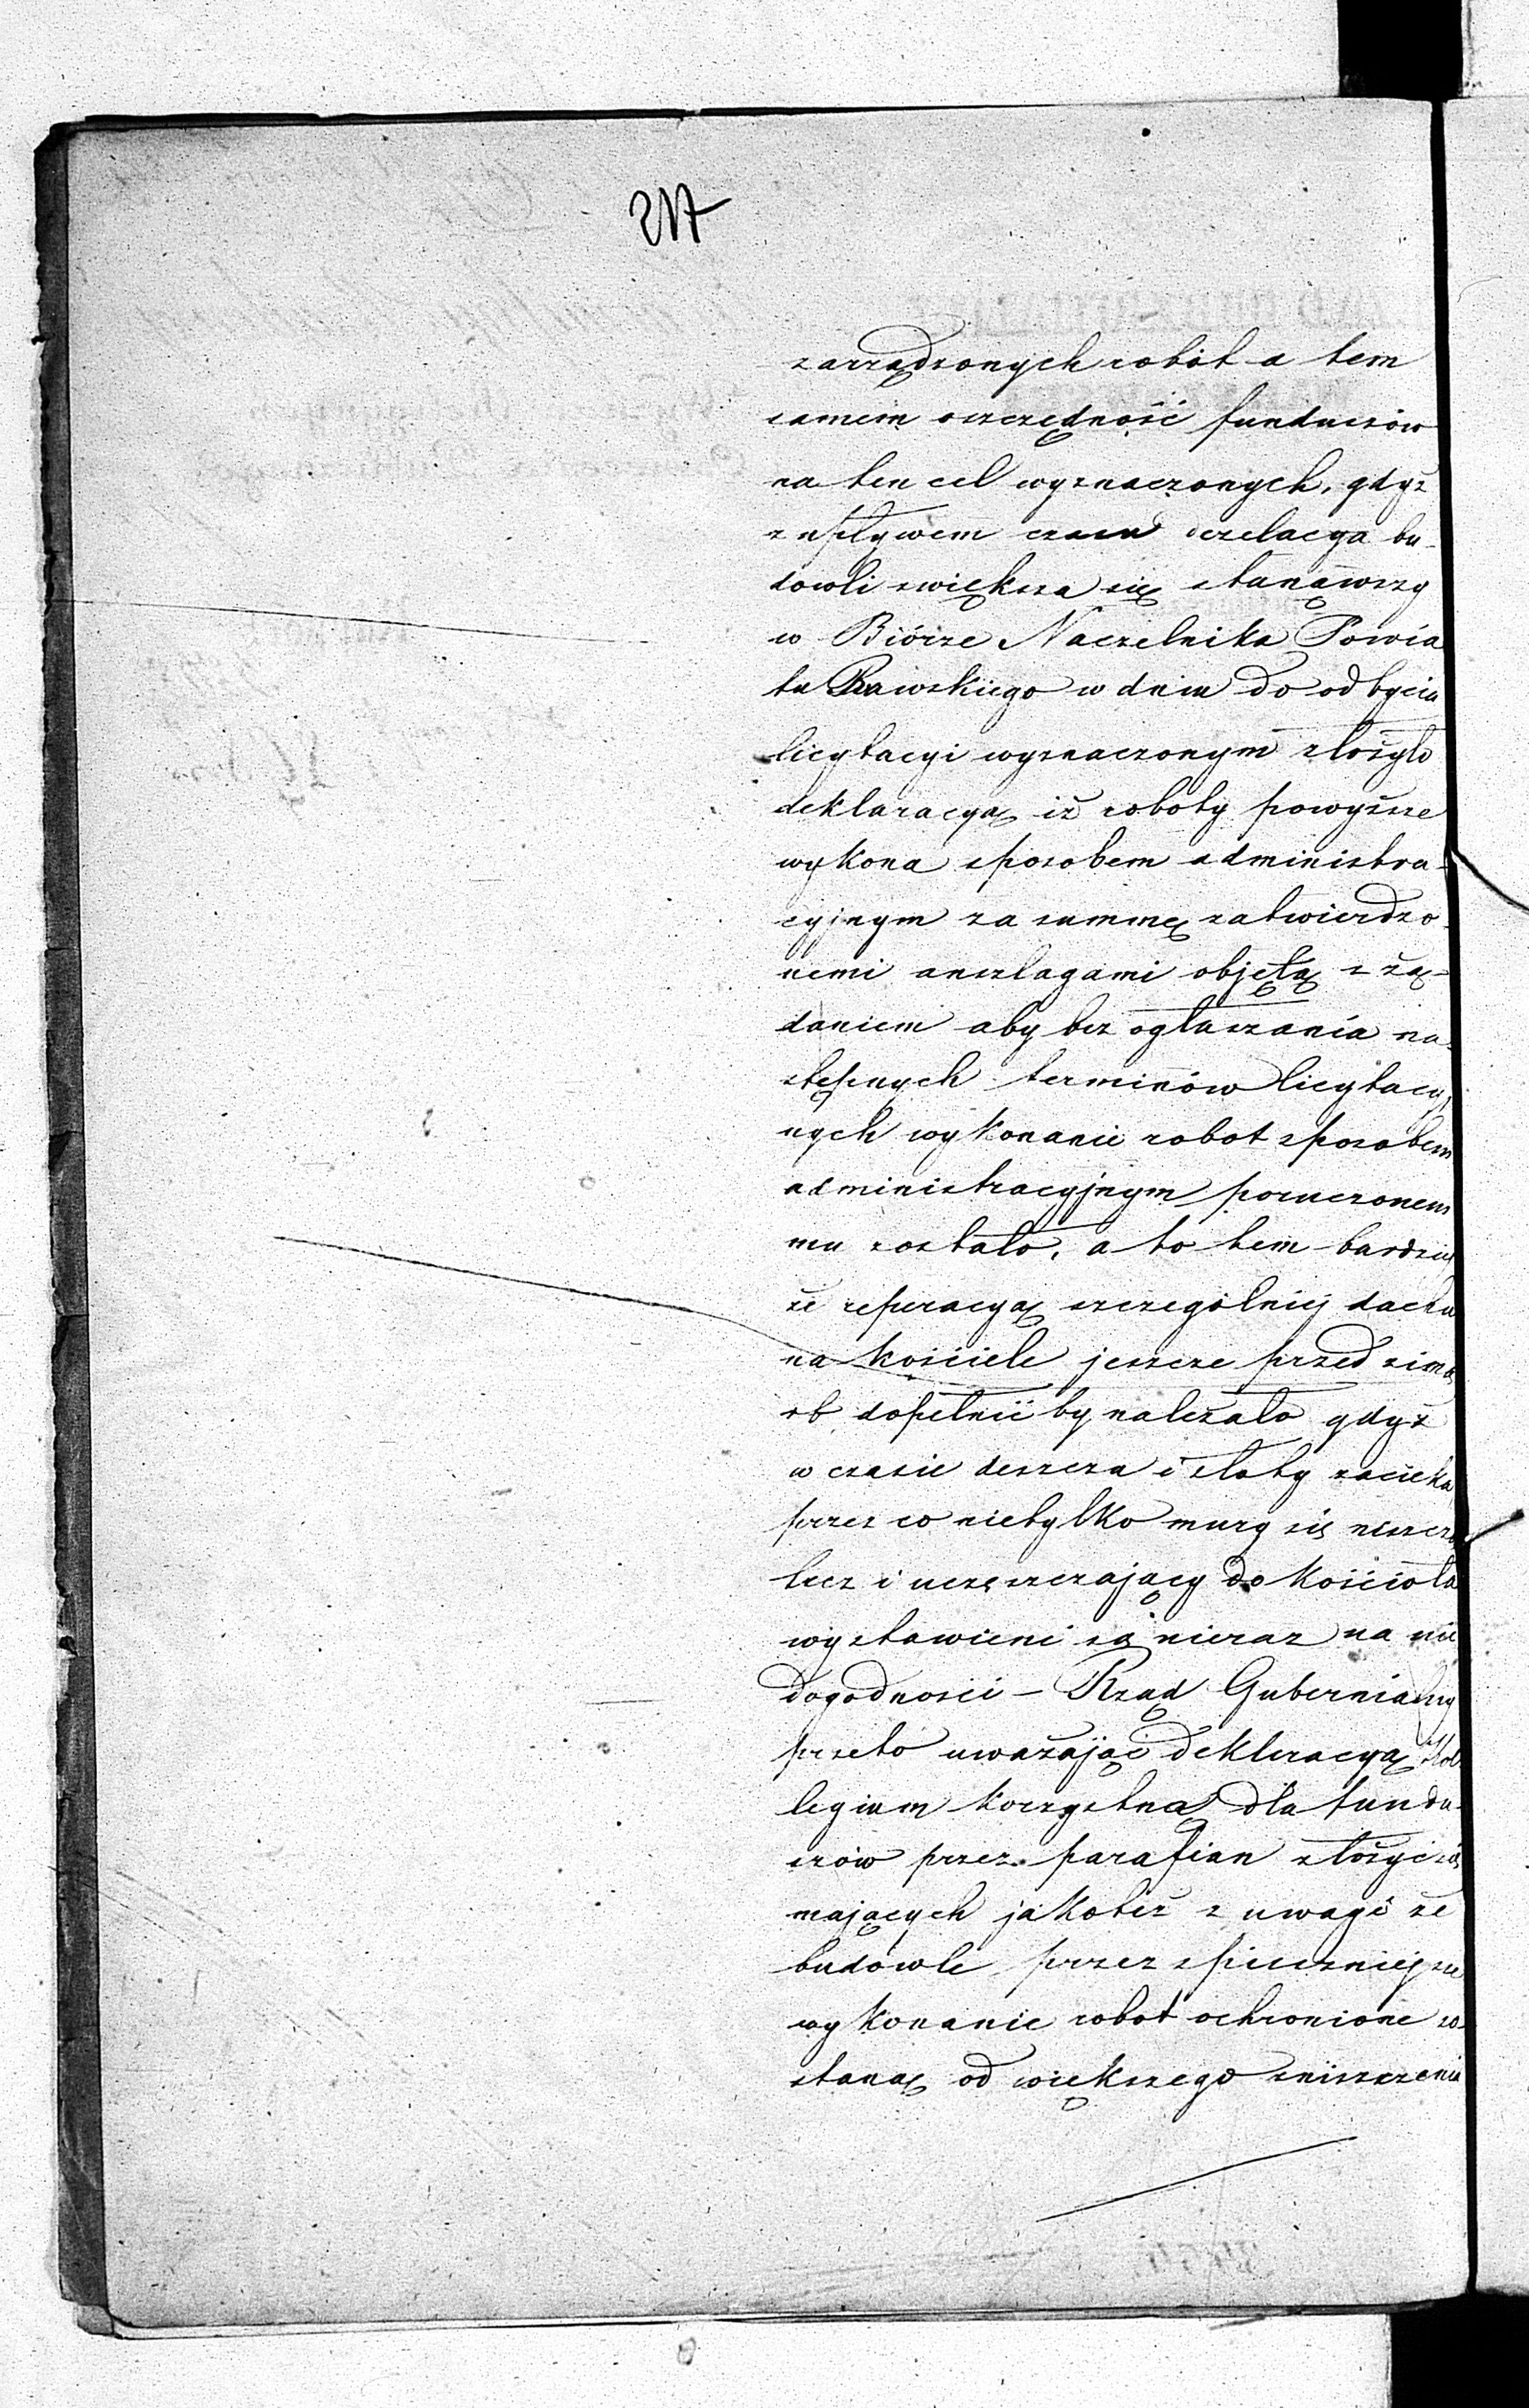 217
zarządzonych robót a tem
samem oszczędność funduszów
na ten cel wyznaczonych, gdyż
z upływem czasu dezelacya bu-
dowli zwiększa się stanąwszy
w Biórze Naczelnika Powia
tu Rawskiego w dniu do odbycia
licytacyi wyznaczonym złożyło
deklaracyą iż roboty powyższe
wykona sposobem administra-
cyjnym za summę zatwierdzo-
nemi anszlagami objętą z żą-
daniem aby bez ogłaszania na-
stępnych terminów licytacyj
nych wykonanie robot sposobem
administracyjnym poruczonem
mu zostało, a to tem bardziej
że reperacyą szczególniej dachu
na kościele jeszcze przed zimą
rb dopełnić by należało gdyż
w czasie deszcza i słoty zacieka
przez co nietylko mury się niszczą
lecz i uczęszczający do kościoła
wystawieni są nieraz na nie
dogodności – Rząd Gubernialny
przeto uważając dekleracyą Kol
legium korzystną dla fundu-
szów przez parafian złożyć się
mających jakoteż z uwagi że
budowle przez spieszniejsze
wykonanie robot ochronione zo-
staną od większego zniszczenia